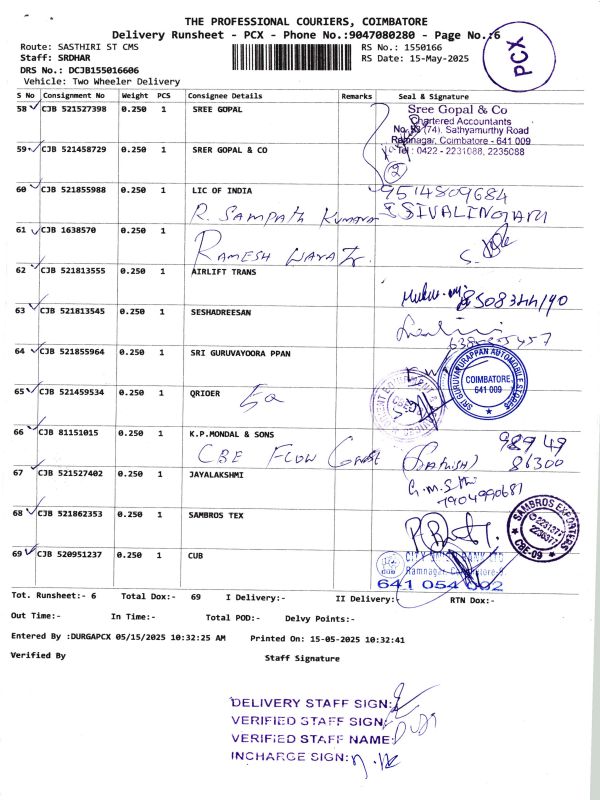 THE PROFESSIONAL COURIERS, COIMBATORE
Delivery Runsheet - PCX - Phone No.:9047080280 - Page No.:6
PCX
Route: SASTHIRI ST CMS
RS No.: 1550166
Staff: SRDHAR
RS Date: 15-May-2025
DRS No.: DCJB155016606
Vehicle: Two Wheeler Delivery
S No Consignment No Weight PCS Consignee Details Remarks Seal & Signature
58 CJB 521527398 0.250 1 SREE GOPAL
Sree Gopal & Co
Chartered Accountants
(74), Sathyamurthy Road
Ramnagar, Coimbatore - 641 009
Tel : 0422 - 2231088, 2235088
59 CJB 521458729 0.250 1 SRER GOPAL & CO
2
60 CJB 521855988 0.250 1 LIC OF INDIA
9514809684
R. SAMPATH KUMARA
61 CJB 1638570 0.250 1
RAMESH
62 CJB 521813555 0.250 1 AIRLIFT TRANS
63 CJB 521813545 0.250 1 SESHADREESAN
64 CJB 521855964 0.250 1 SRI GURUVAYOORA PPAN
SRI GURUVAYURAPPAN AUTOMOBILE STORES
COIMBATORE.
641 009
65 CJB 521459534 0.250 1 QRIOER
CBE
66 CJB 81151015 0.250 1 K.P.MONDAL & SONS
CBE FLOW
98949
86300
67 CJB 521527402 0.250 1 JAYALAKSHMI
7904990681
68 CJB 521862353 0.250 1 SAMBROS TEX
SAMBROS EXPORTERS
CBE-09
69 CJB 520951237 0.250 1 CUB
CITY UNION BANK LTD
CUB
641 054 002
Tot. Runsheet:- 6 Total Dox:- 69 I Delivery:- II Delivery:- RTN Dox:-
Out Time:- In Time:- Total POD:- Delvy Points:-
Entered By :DURGAPCX 05/15/2025 10:32:25 AM Printed On: 15-05-2025 10:32:41
Verified By Staff Signature
DELIVERY STAFF SIGN:
VERIFIED STAFF SIGN:
VERIFIED STAFF NAME:
INCHARGE SIGN: